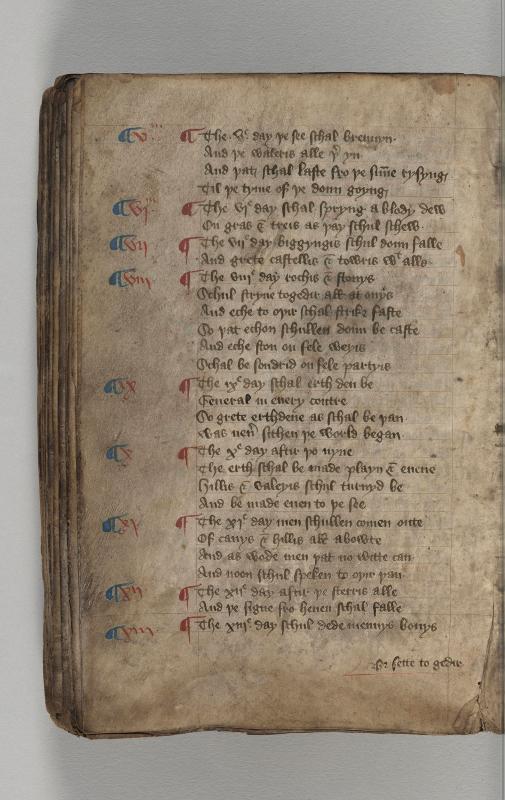 v ¶ The vᵉ day þe see schal brennyn
And þe wateris alle þᵗ yn
And þat schal laste fro þe sūne rysyng
Til þe tyme of þe doun goyng
vi ¶ The viᵉ day schal spryng a blody dew
On gras & treis as þay schul schew
vii ¶ The viiᵉ day biggyngis schul doun falle
And grete castellis & towris wᵗ alle
viii ¶ The viiiᵉ day rochis & stonys
Schul stryue togedir alle at onys
And eche to oþir schal strike faste
So þat echon schullen doun be caste
And eche ston on fele weyis
Schal be sondrid on fele partyis
ix ¶ The ixᵉ day schal erth den be
General in euery contre
So grete erthdene as schal be þan
Was neuer sithen þe world began
x ¶ The xᵉ day aftir þo nyne
The erth schal be made playn & euene
Hillis & valeyis schul turnyd be
And be made euen to þe see
xi ¶ The xiᵉ day men schullen comen oute
Of cauys & hillis alle abowte
And as wode men þat no witte can
And noon schul speken to oþir þan
xii ¶ The xiiᵉ day aftir þe sterris alle
And þe signe fro heuen schal falle
xiii ¶ The xiiiᵉ day schul dede mennys bonys
Be sette to gedir